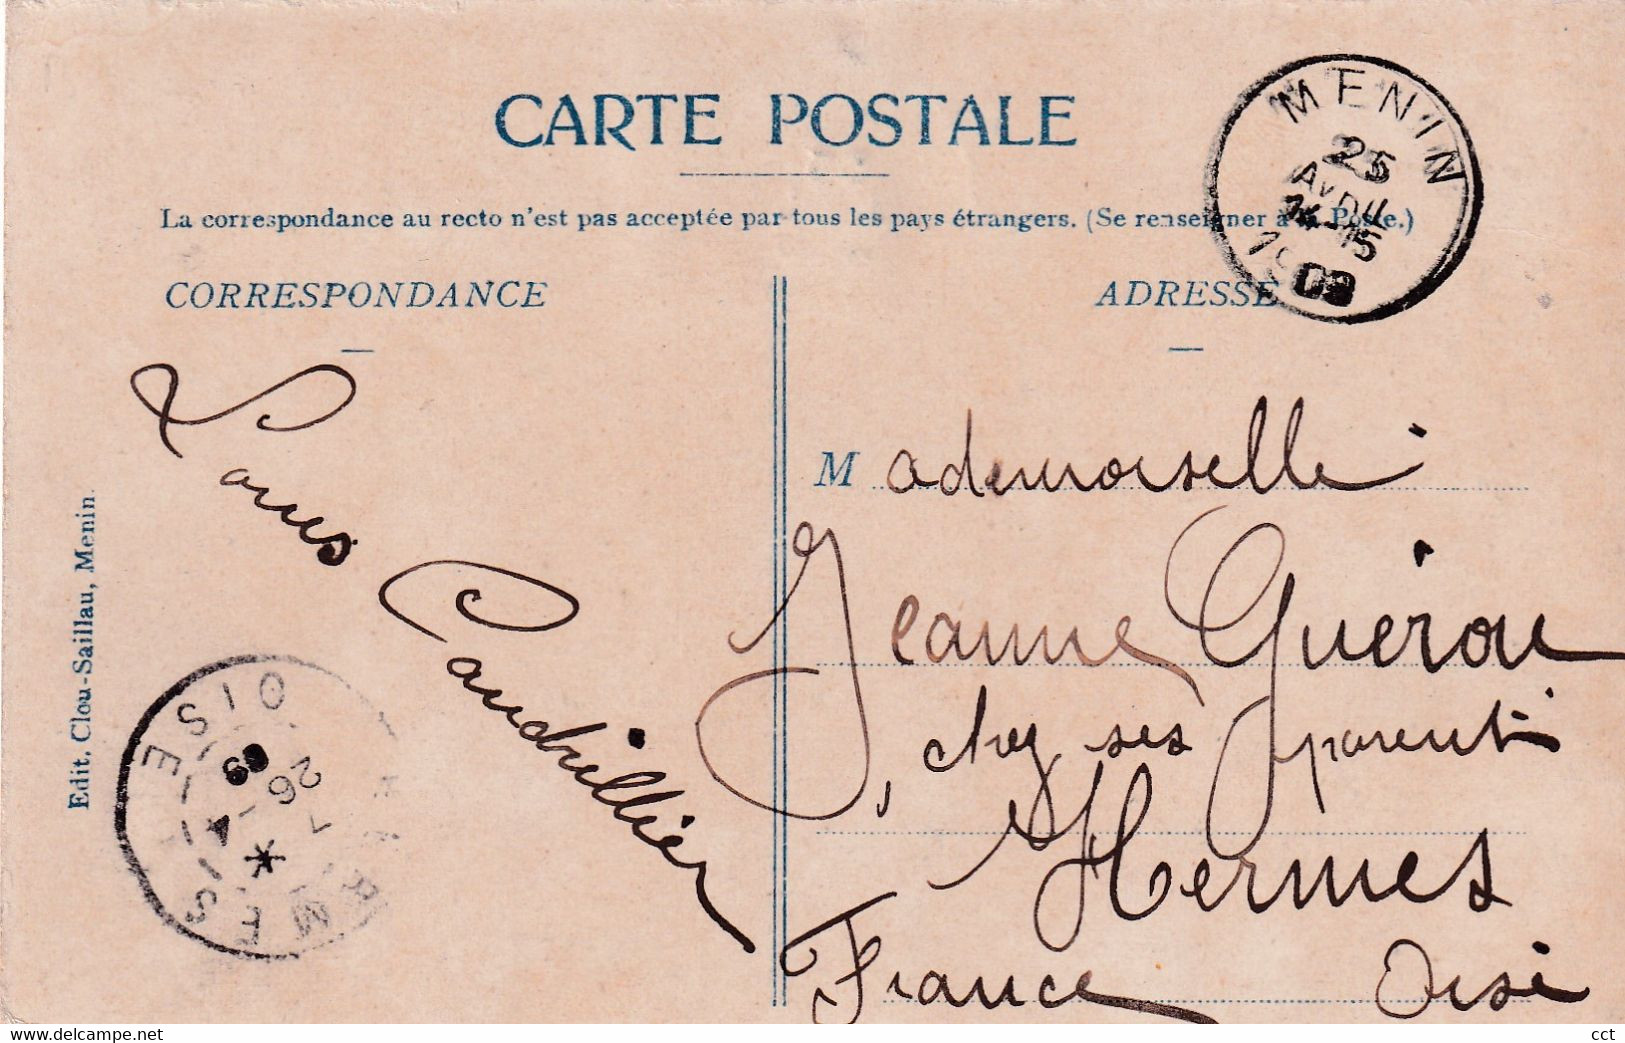 CARTE POSTALE
La correspondance au recto n'est pas acceptée par tous les pays étrangers. (Se renseigner à la Poste.)
CORRESPONDANCE
ADRESSE
MENIN
25
AVRIL
15
Louis Caudrillier
Mademoiselle
Jeanne Guérou
chez ses parents
Hermes
France Oise
Edit. Clou-Saillau, Menin.
HERMES
OISE
26 - 4
09
delcampe.net
cct